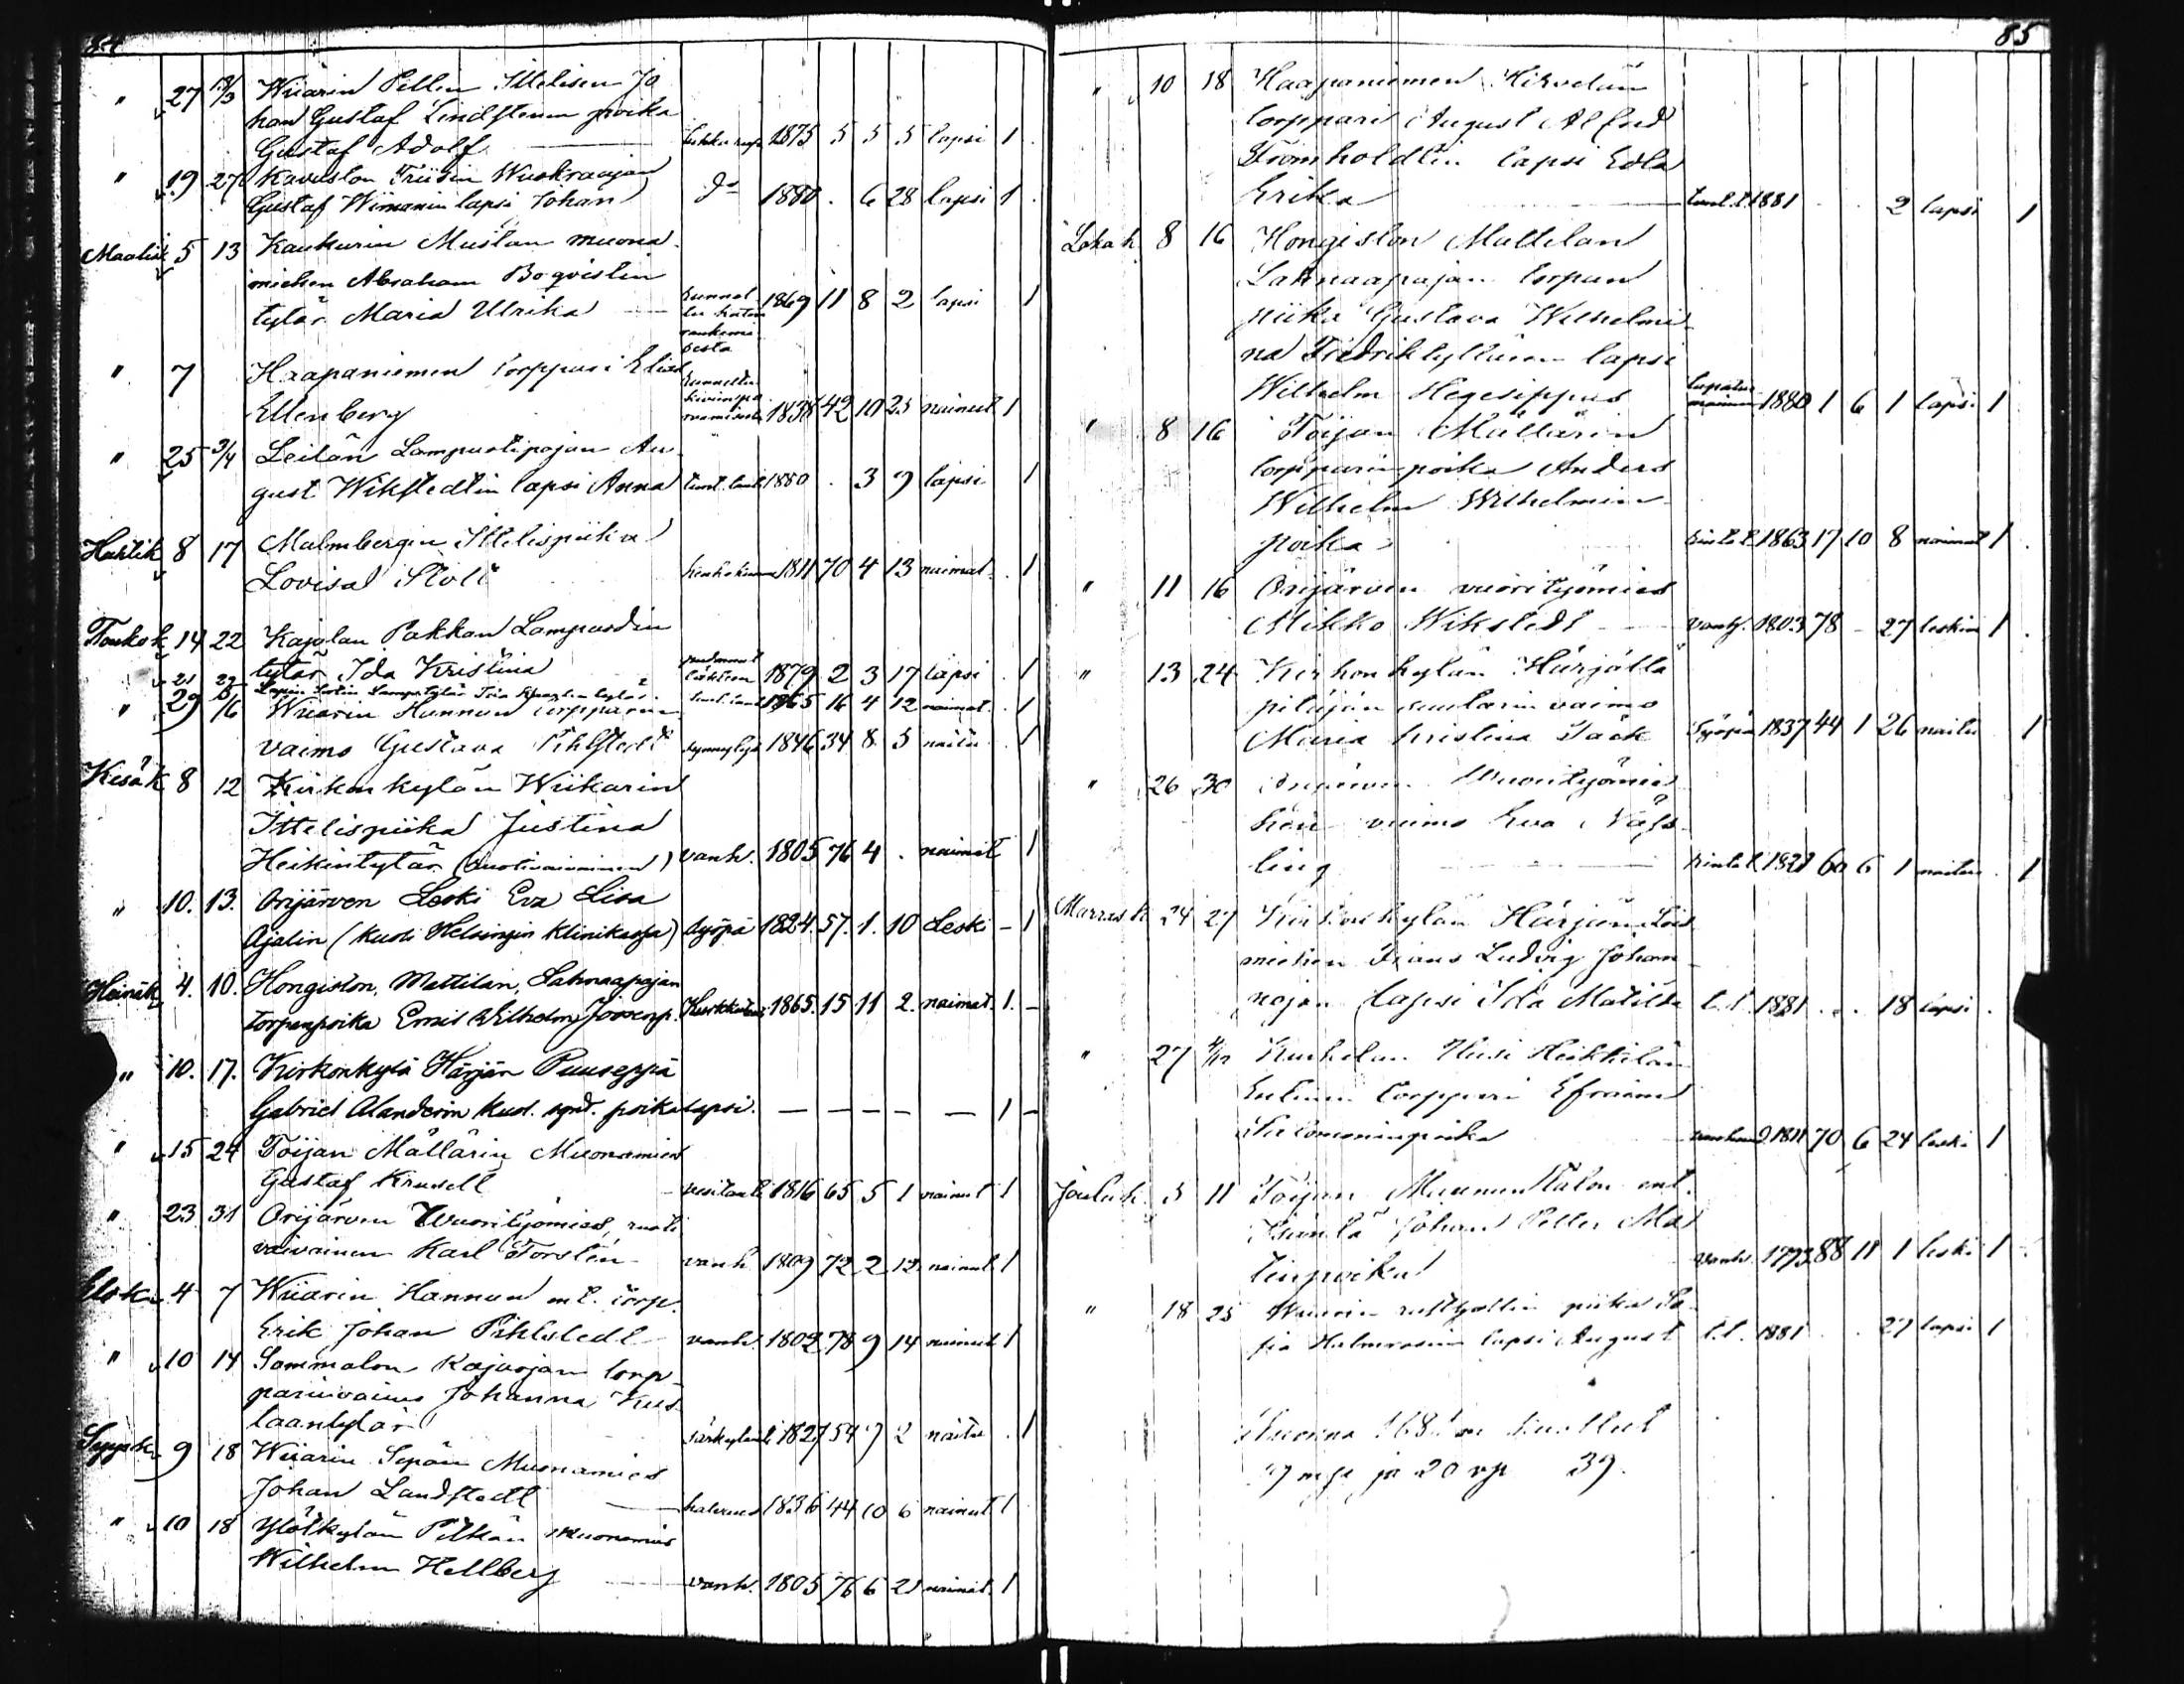 84
" 27 13/3 Wiiarin Pellin Ittelisen Jo
han Gustaf Lindstenin poika
Gustaf Adolf 1875 5 5 5 lapsi 1
" 19 27 Kavaston Triisin Wuokraajan
Gustaf Wimanin lapsi Johan do 1880 . 6 28 lapsi 1
Maalisk 5 13 Kaukurin Mustan muona
miehen Abraham Boqvistin
tytär Maria Ulrika 1869 11 8 2 lapsi 1
" 7 Haapaniemen torppari Elias
Ellenberg 1838 42 10 25 nainut 1
" 25 3/4 Leilän Lampuotipajan Au
gust Wikstedtin lapsi Anna 1880 . 3 9 lapsi 1
Huhtik 8 17 Malmbergin Ittelispiika
Lovisa Stolt 1811 70 4 13 naimat. 1
Toukok 14 22 Kajalan Pakkan Lampuodin
tytär Ida Kristina 1879 2 3 17 lapsi 1
21 29 1865 16 4 12 naimat. 1
" 29 5/6 Wiiarin Hannun torpparin
vaimo Gustava Pihlstedt 1846 34 8 5 naitu 1
Kesäk 8 12 Kirkonkylän Wiikarin
Ittelispiika Justina
Heikintytär (Ruotivaivainen) vanh. 1805 76 4 . naimat 1
" 10. 13. Orijärven Leski Eva Lisa
Ajalin (kuoli Helsingin klinikassa) syöpä 1824. 57. 1. 10 Leski - 1
Heinäk 4. 10. Hongiston, Mattilan, Lahnaapajan
torpanpoika Emil Wilhelm Joosenp. 1865. 15 11 2. naimat. 1. -
" 10. 17. Kirkonkylä Härjän Puuseppä
Gabriel Alanderin kuol. synt. poikalapsi. - - - - - 1 -
" 15 24 Toijan Mällärin Muonamies
Gustaf Krusell vesitauti 1816 65 5 1 nainut 1
" 23 31 Orijärven Wuorityömies, ruoti
vaivainen Karl Torstén vanh 1809 72 2 12 nainut 1
Elok 4 7 Wiiarin Hannun m.t. torp.
Erik Johan Pihlstedt vanh. 1802 78 9 14 nainut 1
" 10 14 Sammalon Kajaojan torp
parinvaimo Johanna Kus
taantytär 1827 54 7 2 naitu . 1
Syysk 9 18 Wiiarin Sepän Muonamies
Johan Landstedt 1836 44 10 6 nainut 1
" 10 18 Ylöskylän Pitkän muonamies
Wilhelm Hellberg vanh. 1805 76 6 21 nainut. 1
85
" 10 18 Haapaniemen Hirvelän
torppari August Alfred
Fromholdtin lapsi Edla
Erika 1881 . . 2 lapsi 1
Lokak 8 16 Hongiston Mattilan
Lahnaapajan torpan
piika Gustava Wilhelmi
na Fredriktyttären lapsi
Wilhelm Hegesippus 1880 1 6 1 lapsi 1
" 8 16 Toijan Mällärin
torpparinpoika Anders
Wilhelm Wilhelmin
poika 1863 17 10 8 naimat 1
" 11 16 Orijärven vuorityömies
Mikko Wikstedt vanh. 1803 78 - 27 leskim 1
" 13 24 Kirkonkylän Härjällä
pitäjän suutarin vaimo
Maria Kristina Täck Syöpä 1837 44 1 26 naitu 1
" 26 30 Orijärven Wuorityömie
hen vaimo Eva Näfs
ling 1821 60 6 1 naitu . 1
Marrask 24 27 Kirkonkylän Härjän
miehen Frans Ludvig Johan
nojan lapsi Ida Matilda t.t. 1881 . . 18 lapsi .
" 27 4/12 Kurkelan Uusi Heikkilän
torppari Efraim
Salomoninpoika 1811 70 6 24 leski 1
Jouluk 5 11 Toijan Munnun talon ent.
Isäntä Johan Petter Ma
tinpoika vanh. 1793 88 11 1 leski 1
" 18 25 piika So
fia lapsi August t.t. 1881 . . 27 lapsi 1
Vuonna 1881 on kuollut
19 mp ja 20 vp 39.